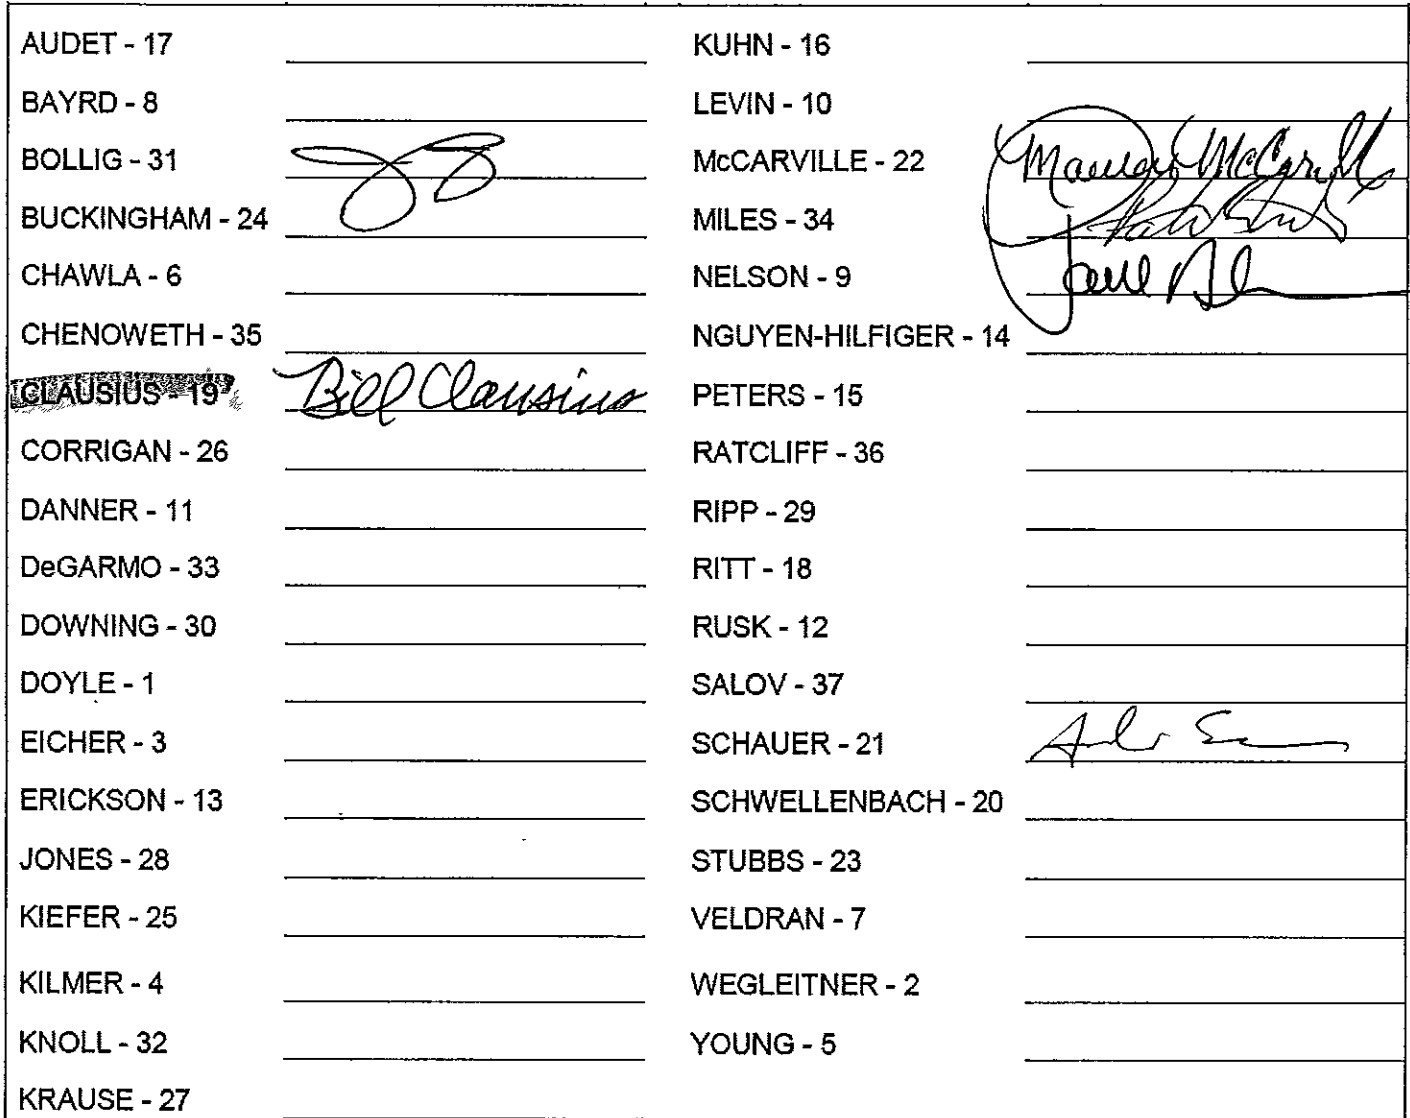 AUDET - 17
BAYRD - 8
BOLLIG - 31
BUCKINGHAM - 24
CHAWLA - 6
CHENOWETH - 35
CLAUSIUS - 19 Bill Clausius
CORRIGAN - 26
DANNER - 11
DeGARMO - 33
DOWNING - 30
DOYLE - 1
EICHER - 3
ERICKSON - 13
JONES - 28
KIEFER - 25
KILMER - 4
KNOLL - 32
KRAUSE - 27
KUHN - 16
LEVIN - 10
McCARVILLE - 22 Maureen McCarville
MILES - 34
NELSON - 9
NGUYEN-HILFIGER - 14
PETERS - 15
RATCLIFF - 36
RIPP - 29
RITT - 18
RUSK - 12
SALOV - 37
SCHAUER - 21
SCHWELLENBACH - 20
STUBBS - 23
VELDRAN - 7
WEGLEITNER - 2
YOUNG - 5